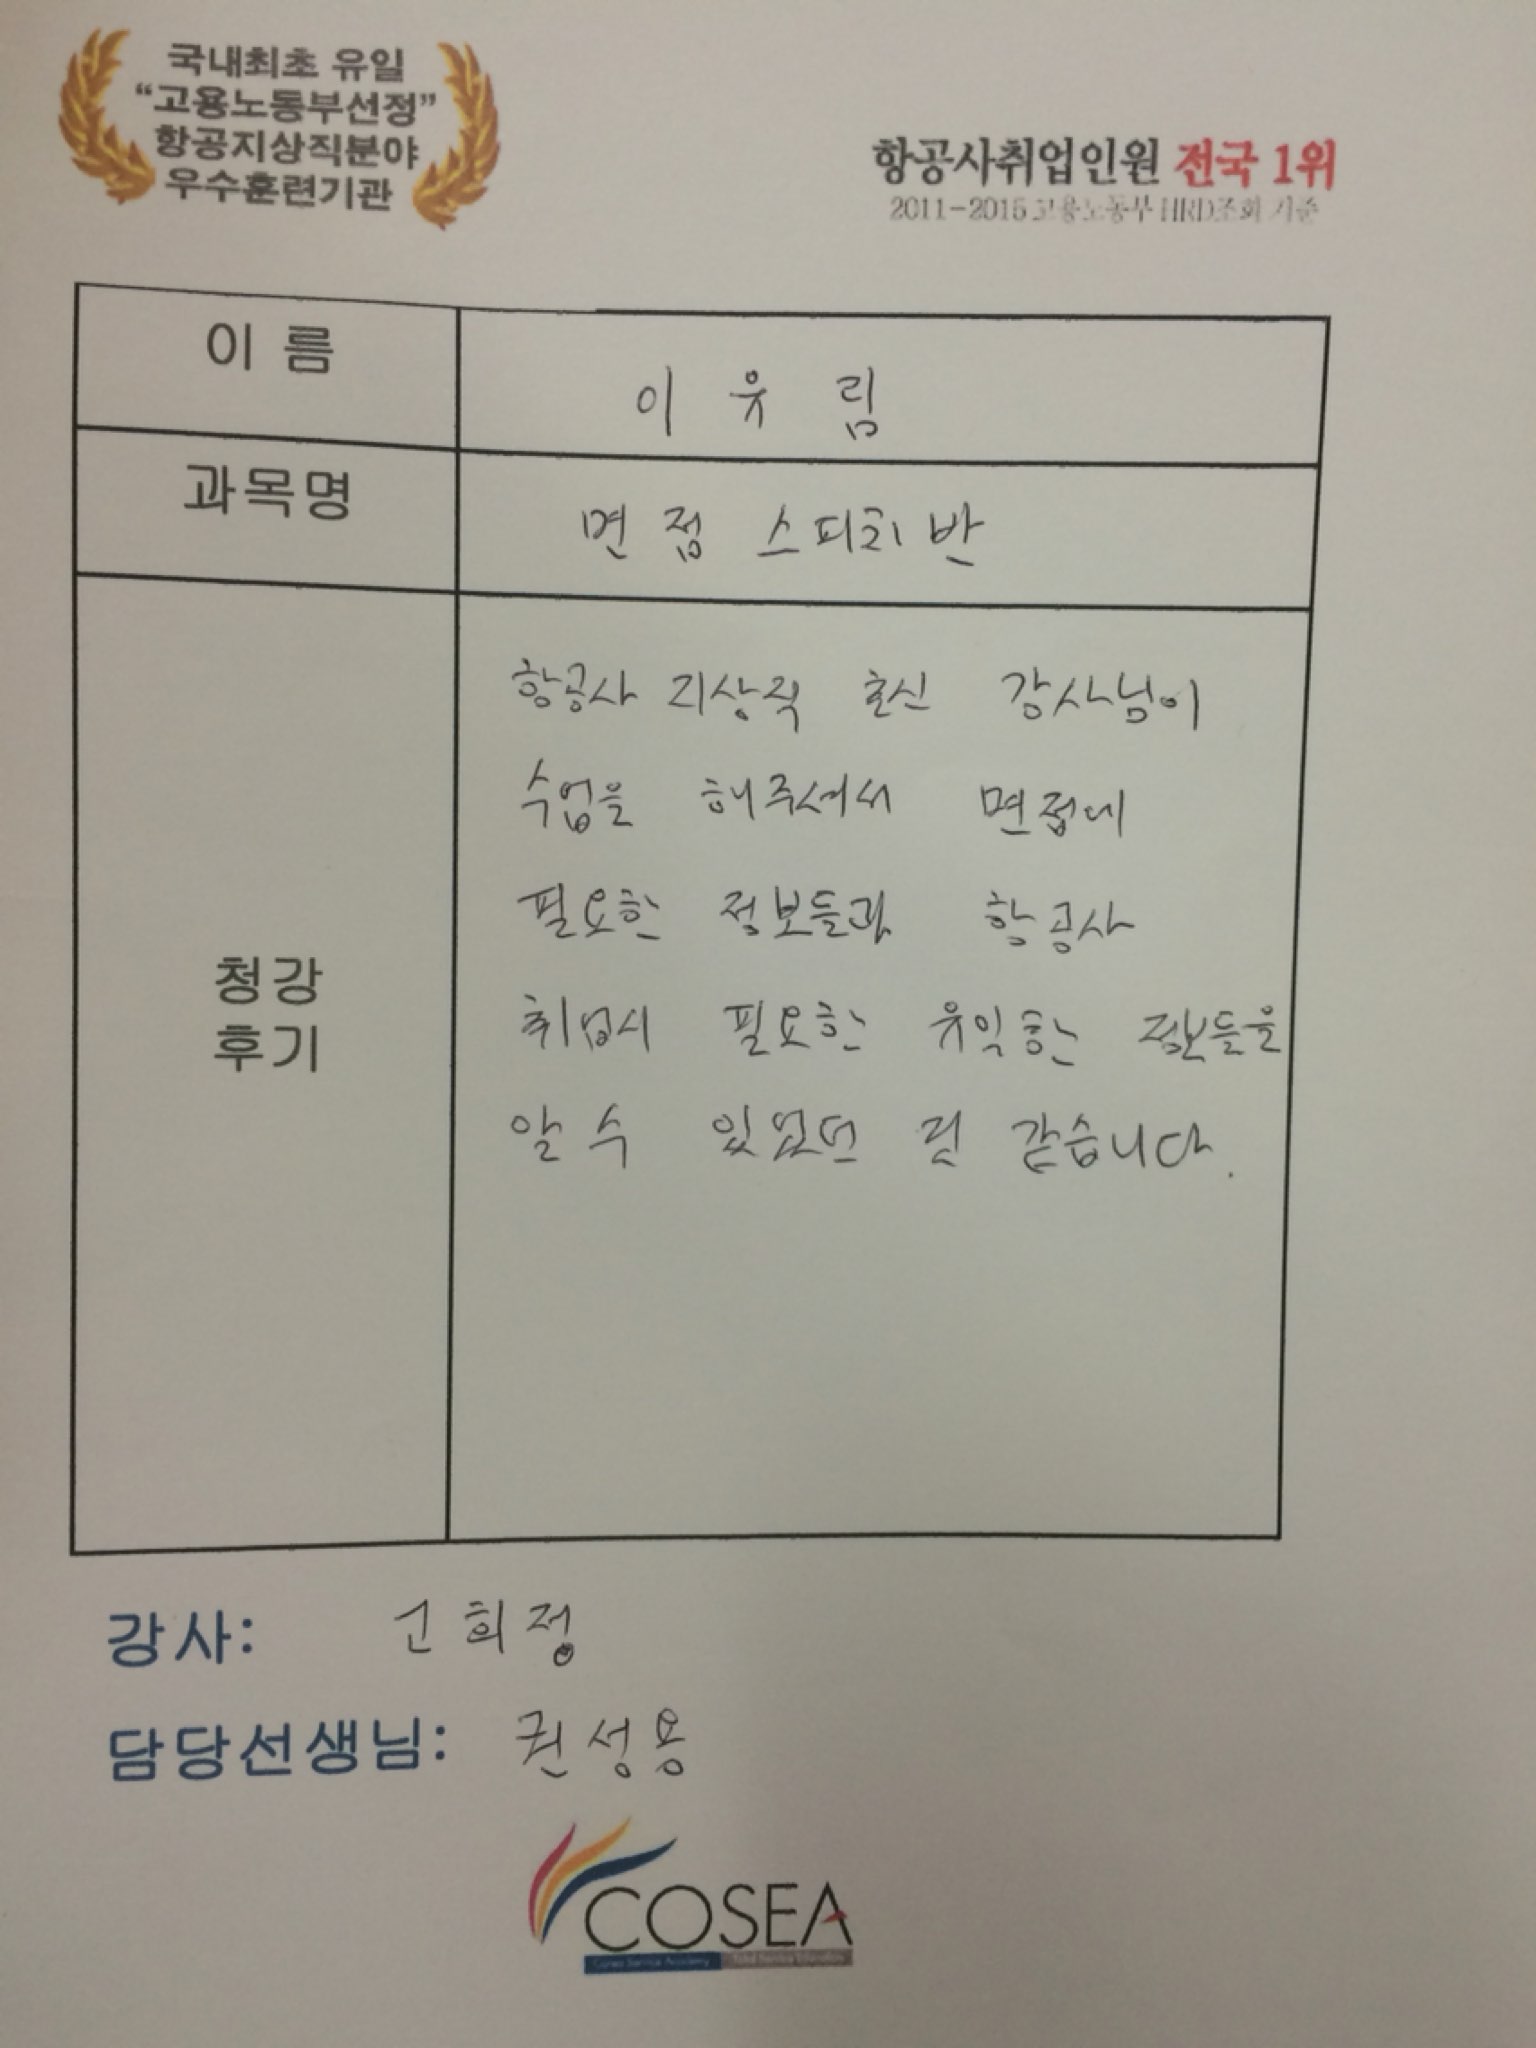 국내최초 유일
“고용노동부선정”
항공지상직분야
우수훈련기관
항공사취업인원 전국 1위
2011-2015 고용노동부 HRD조회 기준
이 름
이 유 림
과목명
면 접 스피치 반
청강
후기
항공사 지상직 출신 강사님이
수업을 해주셔서 면접에
필요한 정보들과 항공사
취업시 필요한 유익한 정보들을
알 수 있었던 것 같습니다.
강사: 고 희 정
담당선생님: 권 성 용
COSEA
Corea Service Academy Total Service Education